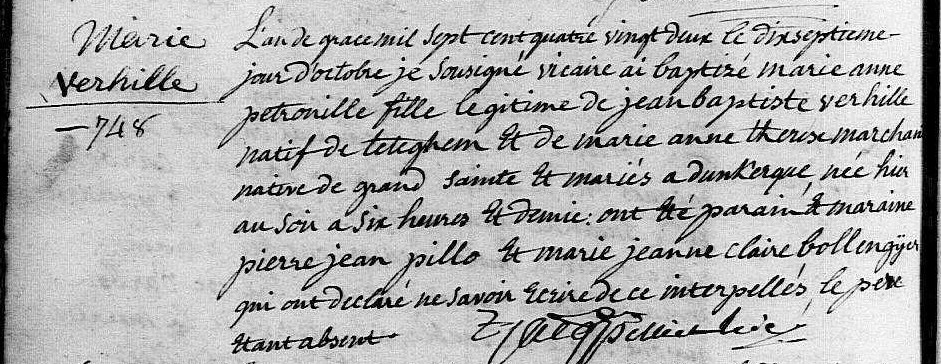 Marie
Verhille
748
L'an de grace mil sept cent quatre vingt deux le dix septieme
jour d'octobre je sousigné vicaire ai baptizé marie anne
petronille fille legitime de jean baptiste verhille
natif de teteghem et de marie anne therese marchan
native de grand sainte et mariés a dunkerque née hier
au soir a six heures et demie: ont été parain et maraine
pierre jean pillo et marie jeanne claire bollengÿer
qui ont declaré ne savoir ecrire de ce interpellés, le pere
etant absent